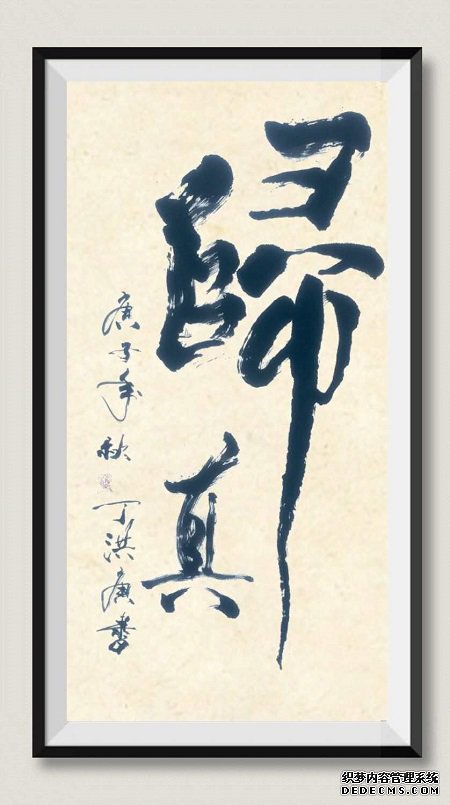 歸真
庚子年秋
丁洪廣書
织梦内容管理系统
DEDECMS.COM